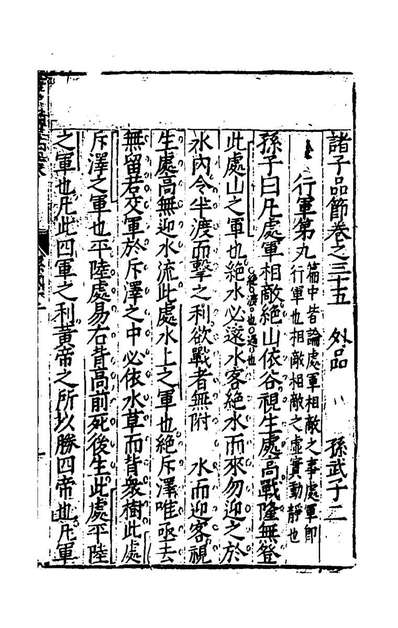 諸子品節卷之三十五　外品　孫武子二
行軍第九
篇中皆論處軍相敵之事處軍即
行軍也相敵相敵之虛實動靜也
孫子曰凡處軍相敵絕山依谷視生處高戰隆無登
此處山之軍也絕水必遠水客絕水而來勿迎之於
水內令半渡而擊之利欲戰者無附　水而迎客視
生處高無迎水流此處水上之軍也絕斥澤唯亟去
無留若交軍於斥澤之中必依水草而背衆樹此處
斥澤之軍也平陸處易右背高前死後生此處平陸
之軍也凡此四軍之利黄帝之所以勝四帝也凡軍